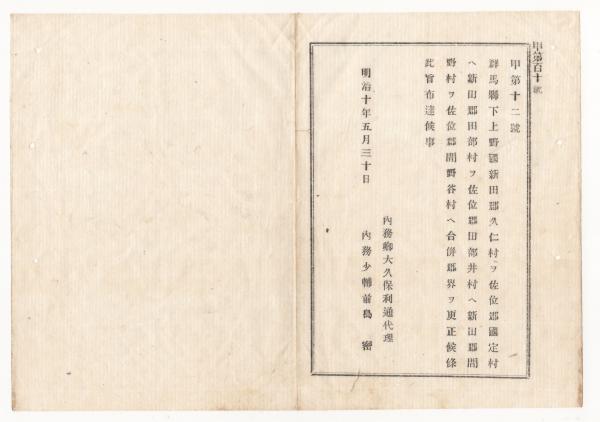 甲第百十號
甲第十二號
群馬縣下上野國新田郡久仁村ヲ佐位郡國定村
ヘ新田郡田部村ヲ佐位郡田部井村ヘ新田郡間
野村ヲ佐位郡間野谷村ヘ合併郡界ヲ更正候條
此旨布達候事
明治十年五月三十日
內務卿大久保利通代理
內務少輔前島 密